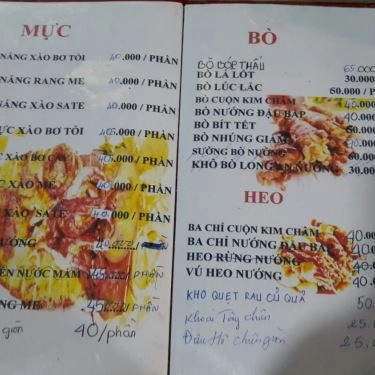 MỰC
NĂNG XÀO BƠ TỎI 40.000 / PHẦN
NĂNG RANG ME 40.000 / PHẦN
NĂNG XÀO SATE 40.000 / PHẦN
XÀO BƠ TỎI 40.000 / PHẦN
XÀO 40.000 / PHẦN
XÀO ME 40.000 / PHẦN
XÀO SATE 40.000 / PHẦN
NƯỚC MẮM 45.000 / PHẦN
NG ME 45.000 / PHẦN
giòn 40/phần
BÒ
BÒ BÓP THẤU 65.000
BÒ LÁ LỐT 30.000
BÒ LÚC LẮC 60.000 / P
BÒ CUỘN KIM CHÂM 40.000
BÒ NƯỚNG ĐẬU BẮP 40.000
BÒ BÍT TẾT 60.000
BÒ NHÚNG GIẤM
SƯỜNG BÒ NƯỚNG 60.000
KHÔ BÒ LONG AN NƯỚNG 30.000
HEO
BA CHỈ CUỘN KIM CHÂM 40.000
BA CHỈ NƯỚNG ĐẬU BẮP 40.00
HEO RỪNG NƯỚNG 40.00
VÚ HEO NƯỚNG 40.0
KHO QUẸT RAU CỦ QUẢ 50.
Khoai Tây chiên 25.0
Đậu Hũ chiên giòn 25.0